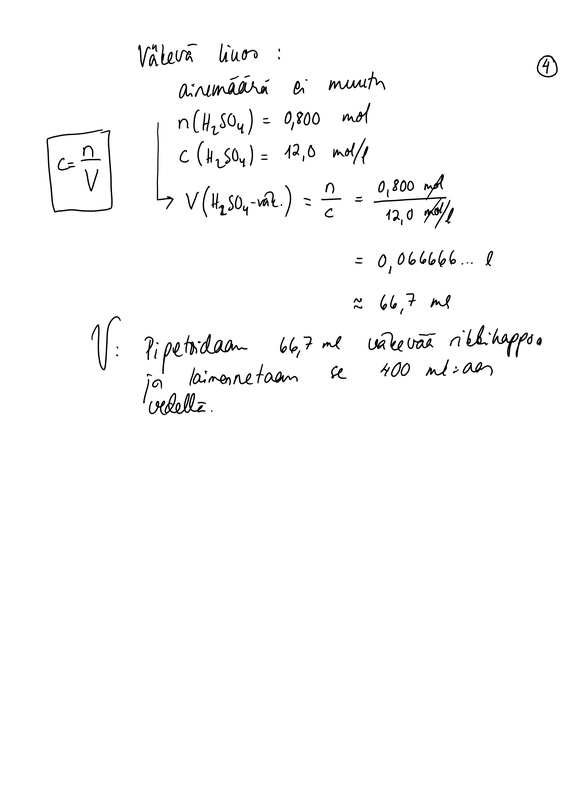 Väkevä liuos :
④
ainemäärä ei muutu
n(H₂SO₄) = 0,800 mol
c(H₂SO₄) = 12,0 mol/l
c = n/V
→ V(H₂SO₄-väk.) = n/c = 0,800 mol / 12,0 mol/l
= 0,066666... l
≈ 66,7 ml
V: Pipetoidaan 66,7 ml väkevää rikkihappoa
ja laimennetaan se 400 ml:aan
vedellä.